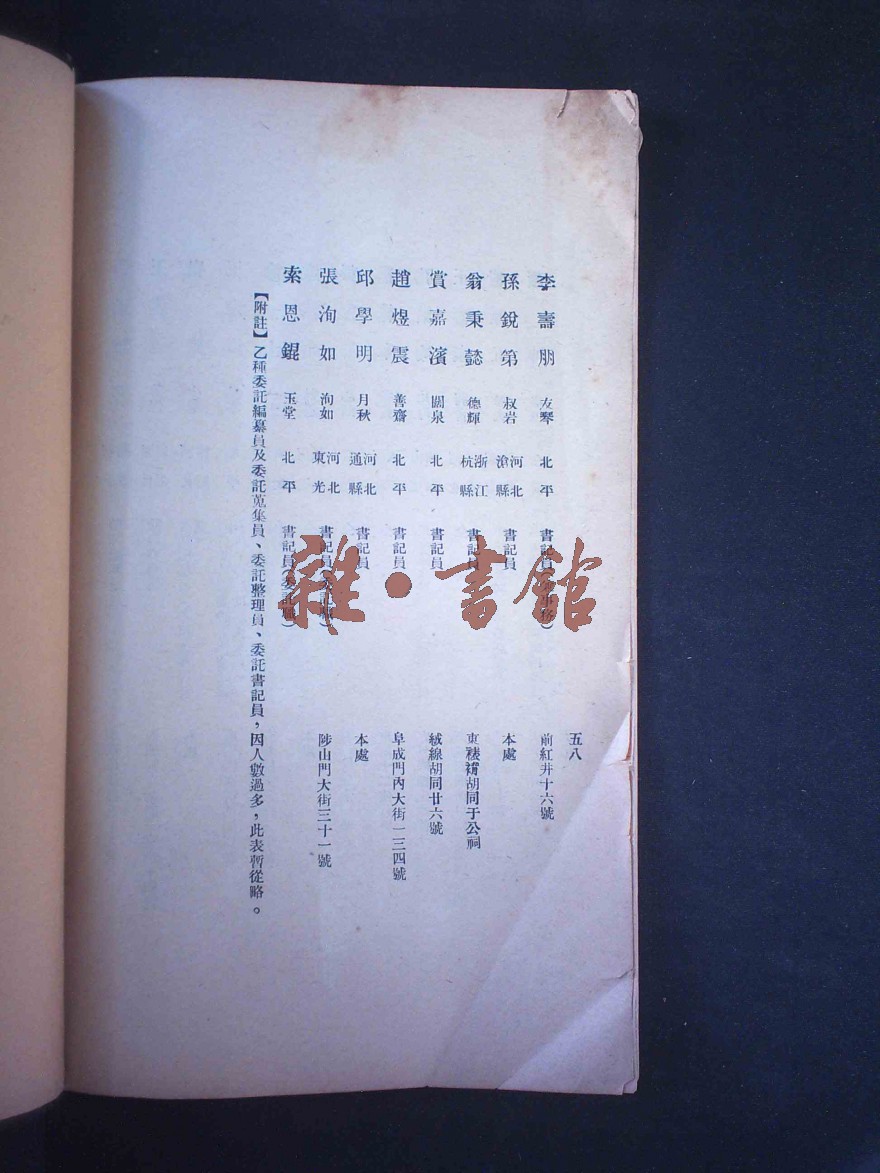 五八
李壽朋 友琴 北平 書記員 前紅井十六號
孫銳第 叔岩 河北滄縣 書記員 本處
翁秉懿 德輝 浙江杭縣 書記員 東裱褙胡同于公祠
賞嘉濱 關泉 北平 書記員 絨線胡同廿六號
趙煜震 善齋 北平 書記員 阜成門內大街一三四號
邱學明 月秋 河北通縣 書記員 本處
張洵如 洵如 河北東光 書記員(委託職) 陟山門大街三十一號
索恩錕 玉堂 北平 書記員(委託職)
【附註】乙種委託編纂員及委託蒐集員、委託整理員、委託書記員，因人數過多，此表暫從略。
雜·書館